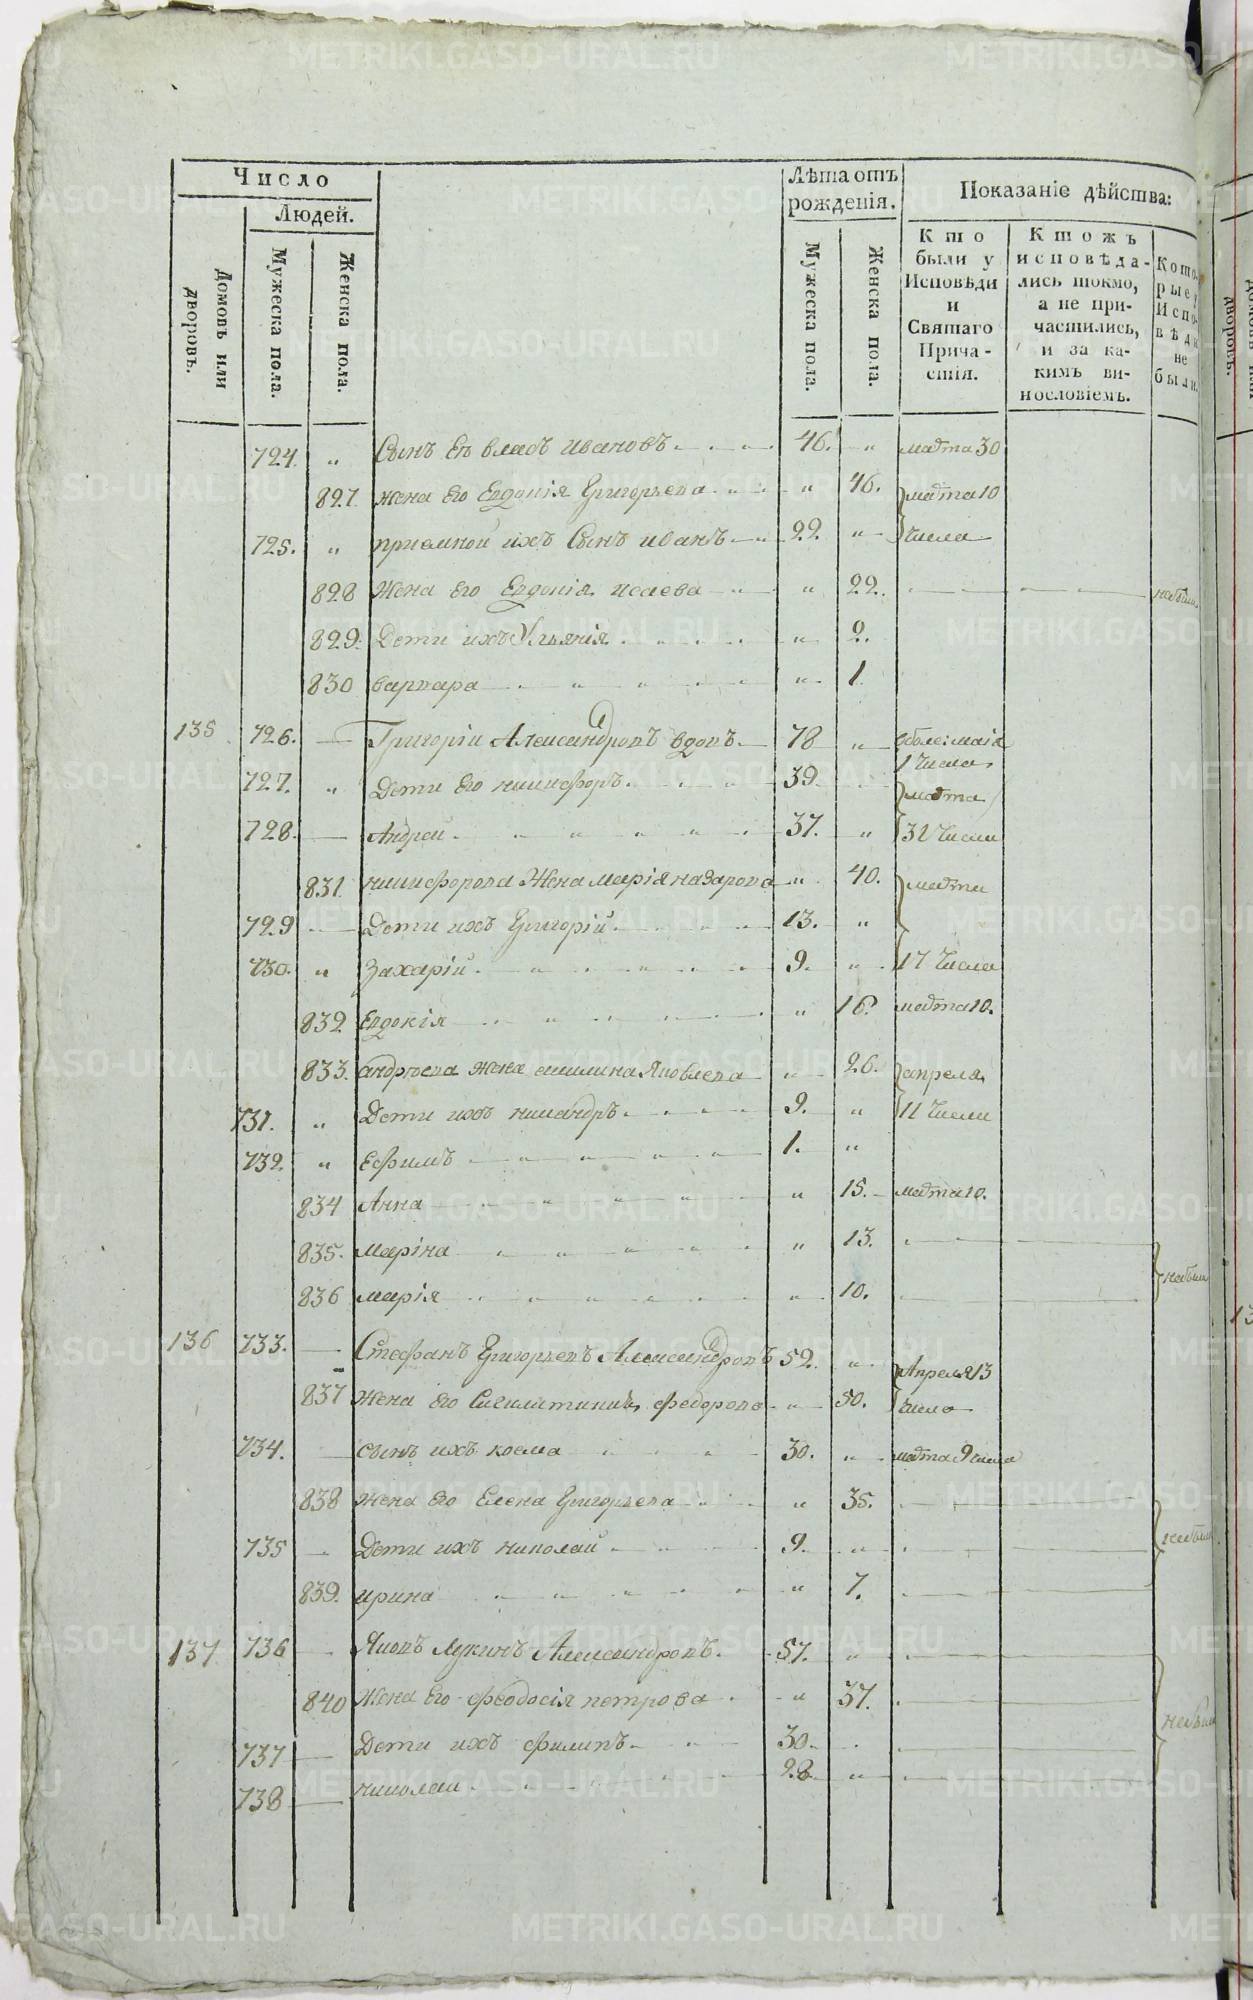 Число
Людей.
Домовъ или дворовъ.
Мужеска пола.
Женска пола.
Лѣта отъ рожденія.
Мужеска пола.
Женска пола.
Показаніе дѣйства:
Кто были у Исповѣди и Святаго Причастія.
Ктожъ исповѣдались токмо, а не причастились, и за какимъ винословіемъ.
Которые у Исповѣди не были.
724. „ Сынъ Ев Иванов 46. „ марта 30
827. жена Его Евдокія Григорьева „ 46. марта 10
725. „ приемной ихъ Сынъ иванъ 22. „ числа
828 Жена Его Евдокія исаева „ 22. небыли
829. Дети ихъ Ульянія „ 2.
830 варвара „ 1
135 726. Григоріи Александровъ вдовъ 78 „ маія
1 числа
727. „ Дети Его никифоръ 39. марта
728. Андреи 37. „ 31 числа
831 никифорова Жена марія назарова „ 40. марта
729 Дети ихъ Григорій 13. „
730. „ Захарій 9. „ 17 числа
832 Евдокія „ 16. марта 10.
833. андреева жена акилина Яковлева „ 26. апреля
731. „ Дети ихъ никандръ 9. „ 11 числа
732. „ Ефимъ 1. „
834 Анна „ 15. марта 10.
835. маріна „ 13.
836 марія „ 10. небыли
136 733. Стефанъ Григорьевъ Александровъ 52. „ Апреля 13
837 Жена Его федорова „ 50. число
734. сынъ ихъ косма 30. „ марта 9 числа
838 жена Его Елена Григорьева „ 35.
735 Дети ихъ николаи 9. „ небыли
839. ирина „ 7.
137 736 Яковъ Лукинъ Александровъ. 57. „
840 Жена Его феодосія петрова „ 37. небыли
737 Дети ихъ филипъ 30.
738 николаи 28. „
METRIKI.GASO-URAL.RU